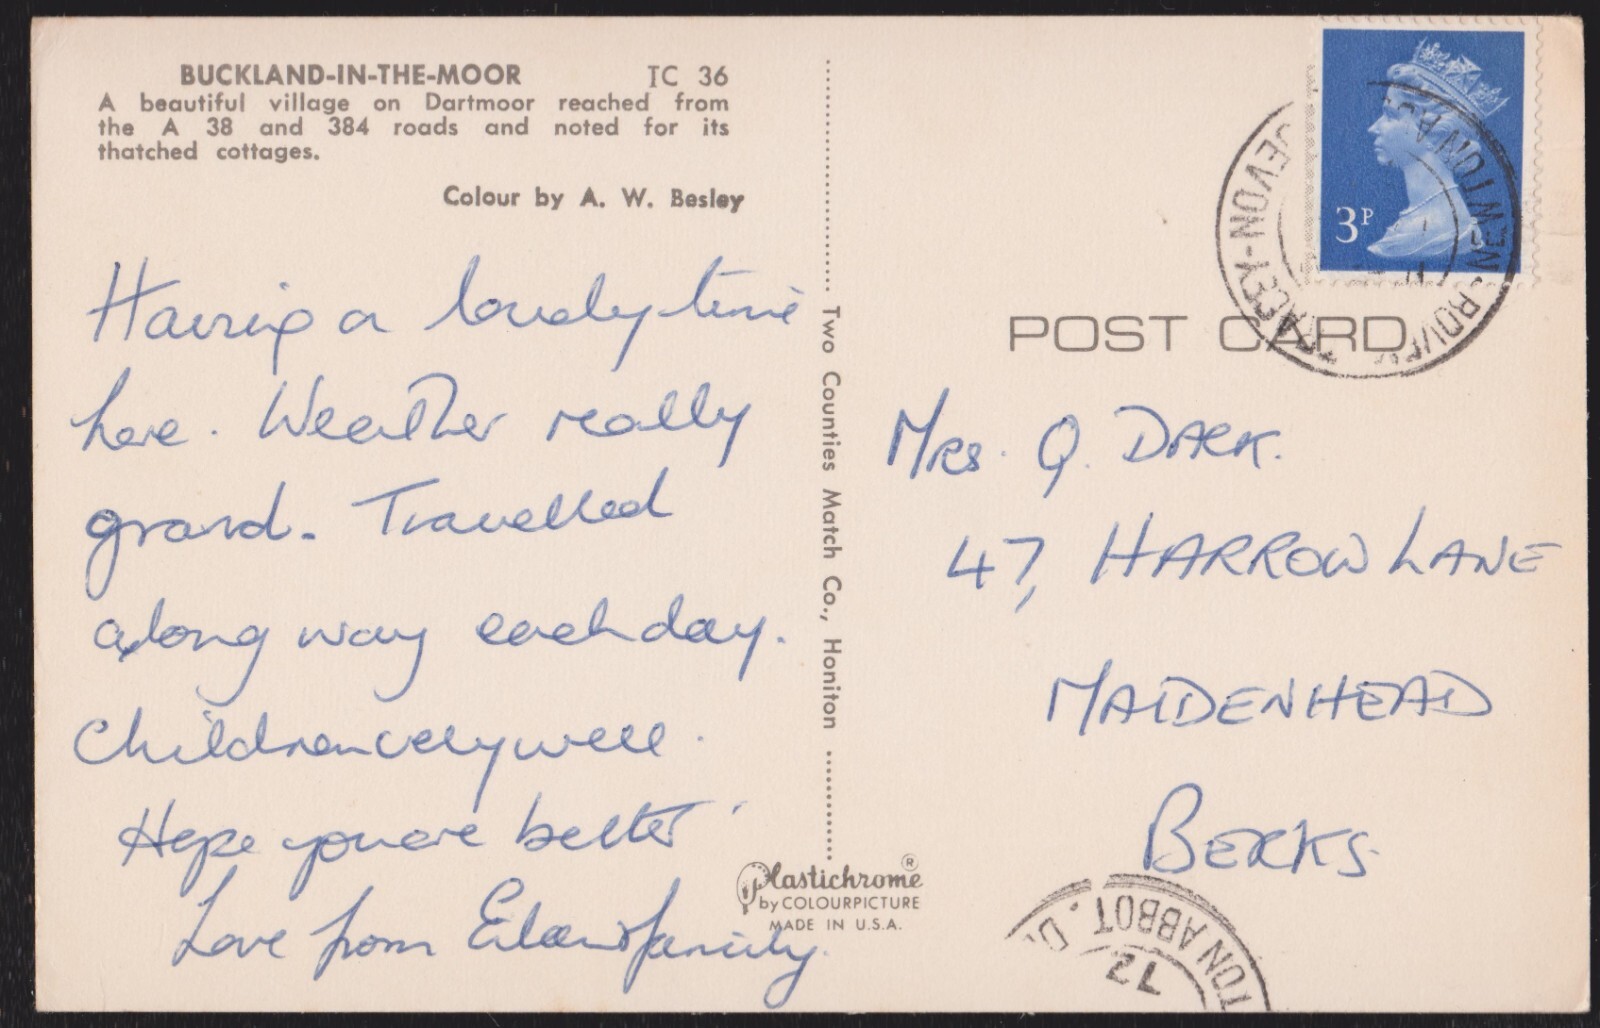 BUCKLAND-IN-THE-MOOR TC 36
A beautiful village on Dartmoor reached from
the A 38 and 384 roads and noted for its
thatched cottages.
Colour by A. W. Besley
Having a lovely time
here. Weather really
grand. Travelled
along way each day.
Children very well.
Hope you are better
Love from family.
Two Counties Match Co., Honiton
Plastichrome ®
by COLOURPICTURE
MADE IN U.S.A.
3P
NEWTON A
BOVEY TRACEY - DEVON
POST CARD
Mrs. Q. DARK.
47, HARROW LANE
MAIDENHEAD
BERKS.
TON ABBOT. D
72